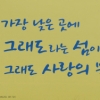 가장 낮은 곳에
그래도라는 섬이
그래도 사랑의